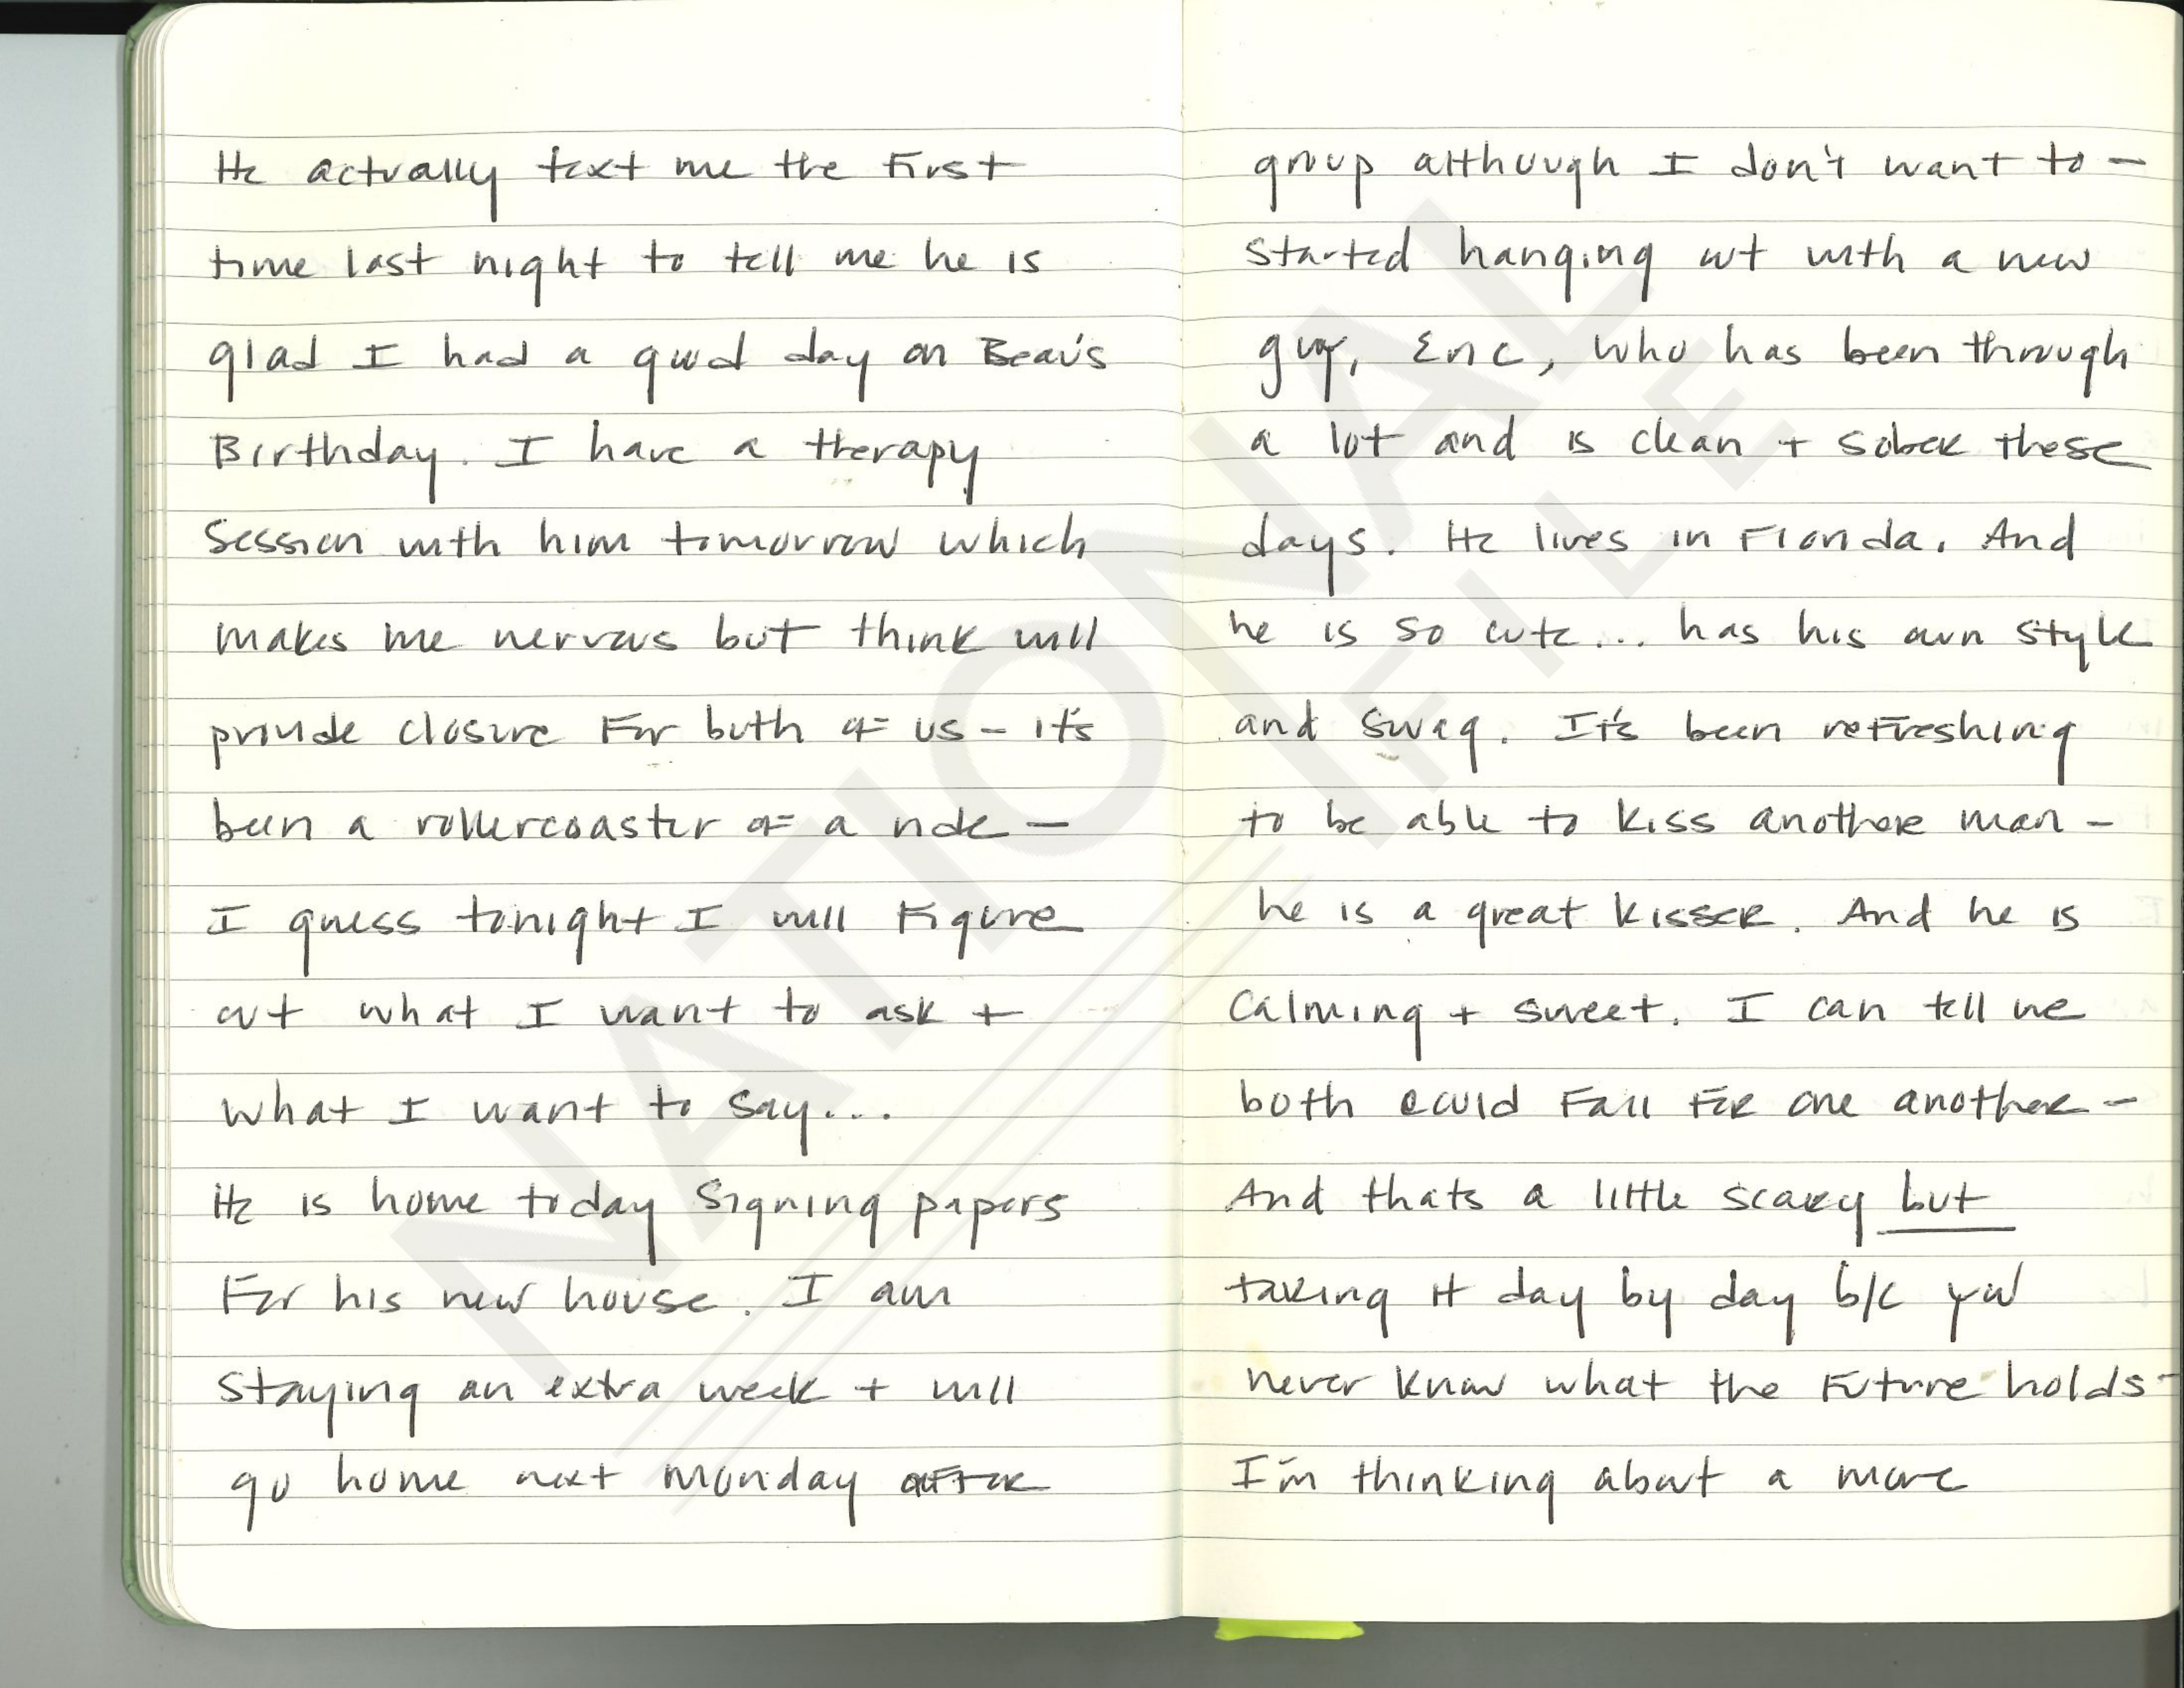 He actually text me the First
time last night to tell me he is
glad I had a good day on Beau's
Birthday. I have a therapy
Session with him tomorrow which
makes me nervous but think will
provide closure For both of us - it's
been a rollercoaster of a ride -
I guess tonight I will Figure
out what I want to ask +
what I want to say...
He is home today signing papers
For his new house. I am
staying an extra week + will
go home next Monday after
group although I don't want to -
started hanging out with a new
guy, Eric, who has been through
a lot and is clean + sober these
days. He lives in Florida. And
he is so cute... has his own style
and swag. It's been reFreshing
to be able to kiss another man -
he is a great kisser. And he is
calming + sweet. I can tell we
both could Fall For one another -
And thats a little scary but
taking it day by day b/c you
never know what the Future holds -
I'm thinking about a more
NATIONAL
FILE